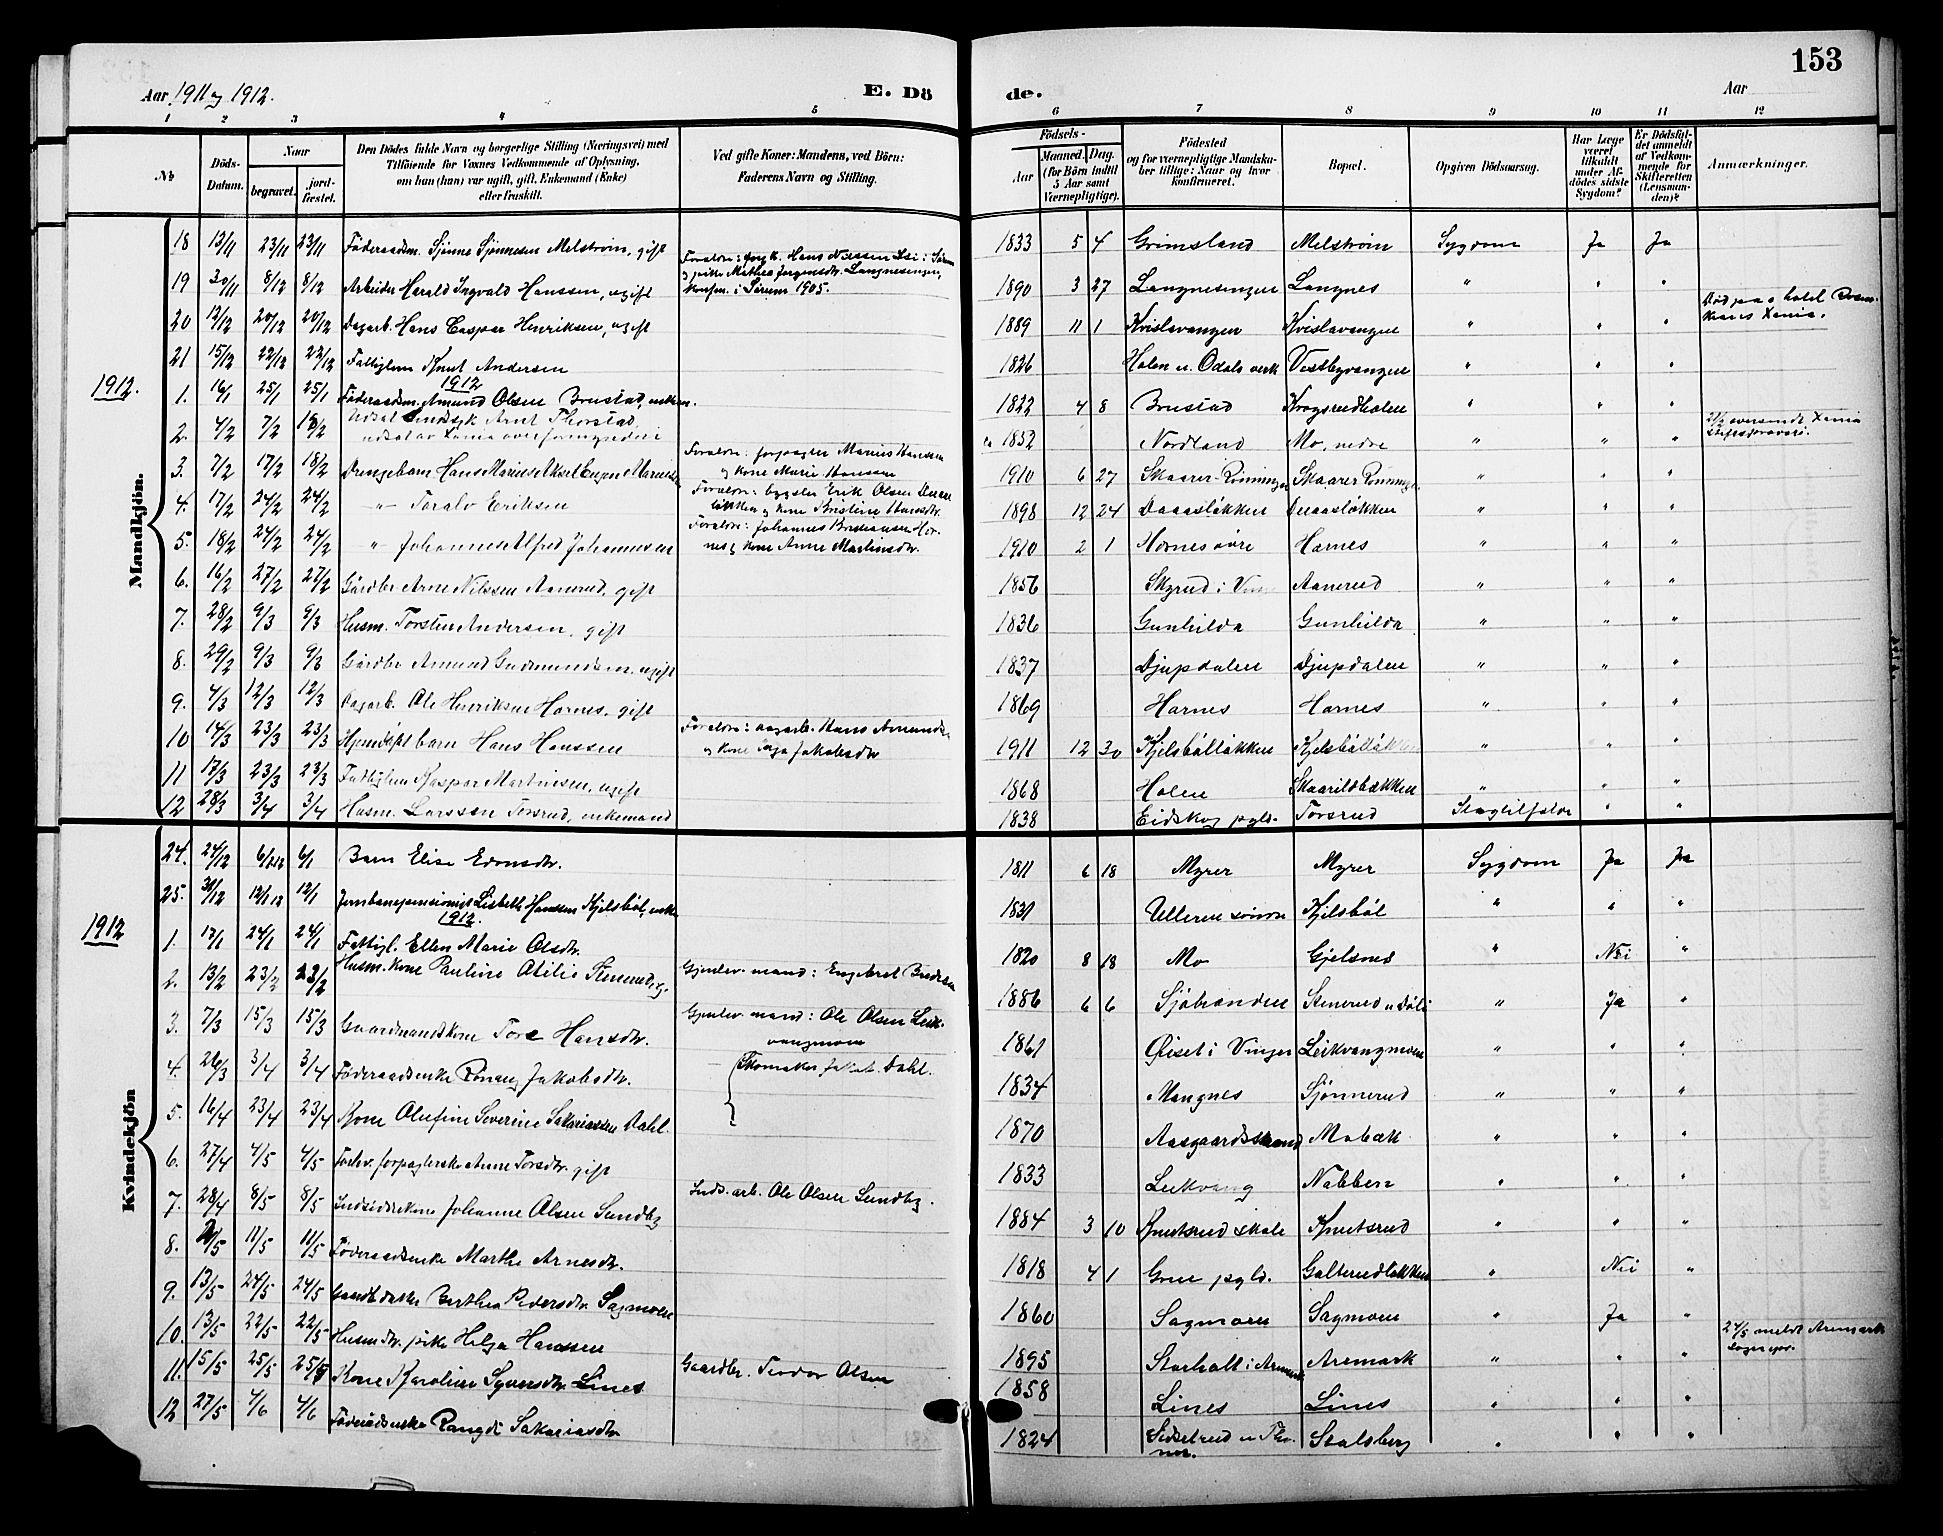 153
Aar 1911 og 1912.
E. Dö
de.
Aar
1 2 3 4 5 6 7 8 9 10 11 12
№ | Döds-Datum. | Naar begravet. | jord-fæstet. | Den Dödes fulde Navn og borgerlige Stilling (Næringsvei) med Tilföiende for Voxnes Vedkommende af Oplysning, om han (hun) var ugift, gift, Enkemand (Enke) eller fraskilt. | Ved gifte Koner: Mandens, ved Börn: Faderens Navn og Stilling. | Födsels- Aar | Maaned. Dag. (for Börn indtil 5 Aar samt Værnepligtige). | Födested og for værnepligtige Mandska-ber tillige: Naar og hvor konfirmeret. | Bopæl. | Opgiven Dödsaarsag. | Har Læge været tilkaldt under Af-dödes sidste Sygdom? | Er Dödsfal-det anmeldt af Vedkom-mende for Skifteretten (Lensman-den)? | Anmærkninger.
Mandkjön.
18 13/11 23/11 23/11 Föderaadsm. Sjønne Sjønnesen Melström, gift 1833 5 4 Grimsland Melström Sygdom Ja Ja
19 30/11 8/12 8/12 Arbeider Harald Ingvald Hanssen, ugift Foraldre: Hans Nilssen og pike Mathea Jørgensdtr. Langnesengen, konfm. i Sørum 1905. 1890 3 27 Langnesengen Langnes " " "
20 12/12 20/12 20/12 Dagarb. Hans Casper Henriksen, ugift 1889 11 1 Kvislavangen Kvislavangen " " " Död paa hotel
21 15/12 22/12 22/12 Fattiglem Knut Andersen 1826 Holen Odals verk Vestbyvangen " " "
1912. 1912
1. 16/1 25/1 25/1 Föderaadsm. Amund Olsen Brustad, enkem. 1822 4 8 Brustad Krogsrudholen " " "
2. 4/2 7/2 Arnt Thorstad 1852 Nordland Mo, nedre " " "
3. 7/2 17/2 18/2 Drengebarn Hans Marius Foraldre: forpagter Marius Hansen og kone Marie Hanssen 1910 6 27 Skaarer Rönningen Skaarer " " "
4. 17/2 24/2 24/2 " Toralv Eriksen Foraldre: bygsler Erik Olsen løkken og kone Kristine Hansdtr. 1898 12 24 " " "
5. 18/2 24/2 24/2 " Johannes Alfred Johannesen Foraldre: Johannes Kristiansen Hor-nes og kone Anne Martinsdtr. 1910 2 1 Hornes øvre Hornes " " "
6. 16/2 27/2 27/2 Gårdbr. Arne Nilssen Aanerud, gift 1856 Skyrud i Vin Aanerud " " "
7. 28/2 9/3 9/3 Husm. Torsten Andersen, gift 1836 Gunhilda Gunhilda " " "
8. 29/2 9/3 9/3 Gårdbr. Amund Gudmundsen, ugift 1837 Djupdalen Djupdalen " " "
9. 4/3 12/3 12/3 Dagarb. Ole Henriksen Hornes, gift 1869 Hornes Hornes " " "
10 14/3 23/3 23/3 Hjemdöpt barn Hans Hanssen Foraldre: dagarb. Hans Amunds og kone Jakobsdtr 1911 12 30 Kjelsböllökken Kjelsböllökken " " "
11 17/3 23/3 23/3 Fattiglem Kaspar Martinsen, ugift 1868 Holen Skaarildbækken " " "
12 28/3 3/4 3/4 Husm. Larssen Torsrud, enkemand 1838 Eidskog pgld. Torsrud Slagtilfælde " "
Kvindekjön
24. 24/12 6/1 12 6/1 Barn Elise 1811 6 18 Myrer Myrer Sygdom Ja Ja
25. 30/12 12/1 12 12/1 Jernbanepensionist Lisbeth Hanssen Kjelsböl, enke 1831 Ulleren søndre Kjelsböl " " "
1912 1912.
1. 17/1 24/1 24/1 Fattigl. Ellen Marie Olsdtr. 1820 8 18 Mo Gjelsnes " Nei "
2. 13/2 23/2 23/2 Husm. kone Pauline Otilie Stenerud, g. Gjenlev. mand: Engebret Bredesen 1886 6 6 Sjöbranden Stenerud " Ja "
3. 7/3 15/3 15/3 Gaardmandskone Tore Hansdtr. Gjenlev. mand: Ole Olsen Leik-vangmoen 1861 Øiset i Vinger Leikvangmoen " " "
4. 26/3 3/4 3/4 Föderaadsenke Rönaug Jakobsdtr. 1834 Mangnes Sjönnerud " " "
5. 16/4 23/4 23/4 Kone Olufine Severine Sakariassen Dahl. Skomaker Jakob Dahl. 1870 Aasgaardsstrand Mobæk " " "
6. 27/4 4/5 4/5 Forhv. forpagterske Anne Torsdtr. gift 1833 Leikvang Nabben " " "
7. 28/4 8/5 8/5 Indsidderkone Johanne Olsen Sundby Inds. arb. Ole Olsen Sundby. 1884 3 10 Knutsrud skole Knutsrud " " "
8. 2/5 11/5 11/5 Föderaadsenke Marthe Arnesdtr. 1818 4 1 Grue pgld. Galterudløkken " Nei "
9. 13/5 24/5 24/5 Berthea Pedersdtr. Sagmoen 1860 Sagmoen Sagmoen " Ja "
10. 13/5 22/5 22/5 Husmdtr. pike Helga Hanssen 1895 Storholt i Aremark Aremark " " " 24/5 meldt Aremark Sogepr.
11. 15/5 25/5 25/5 Kone Karoline Syversdtr. Lines Gaardbr. Teodor Olsen 1858 Lines Lines " " "
12 27/5 4/6 4/6 Föderådsenke Rangdi Sakariasdtr 1824 Stalsberg " " "